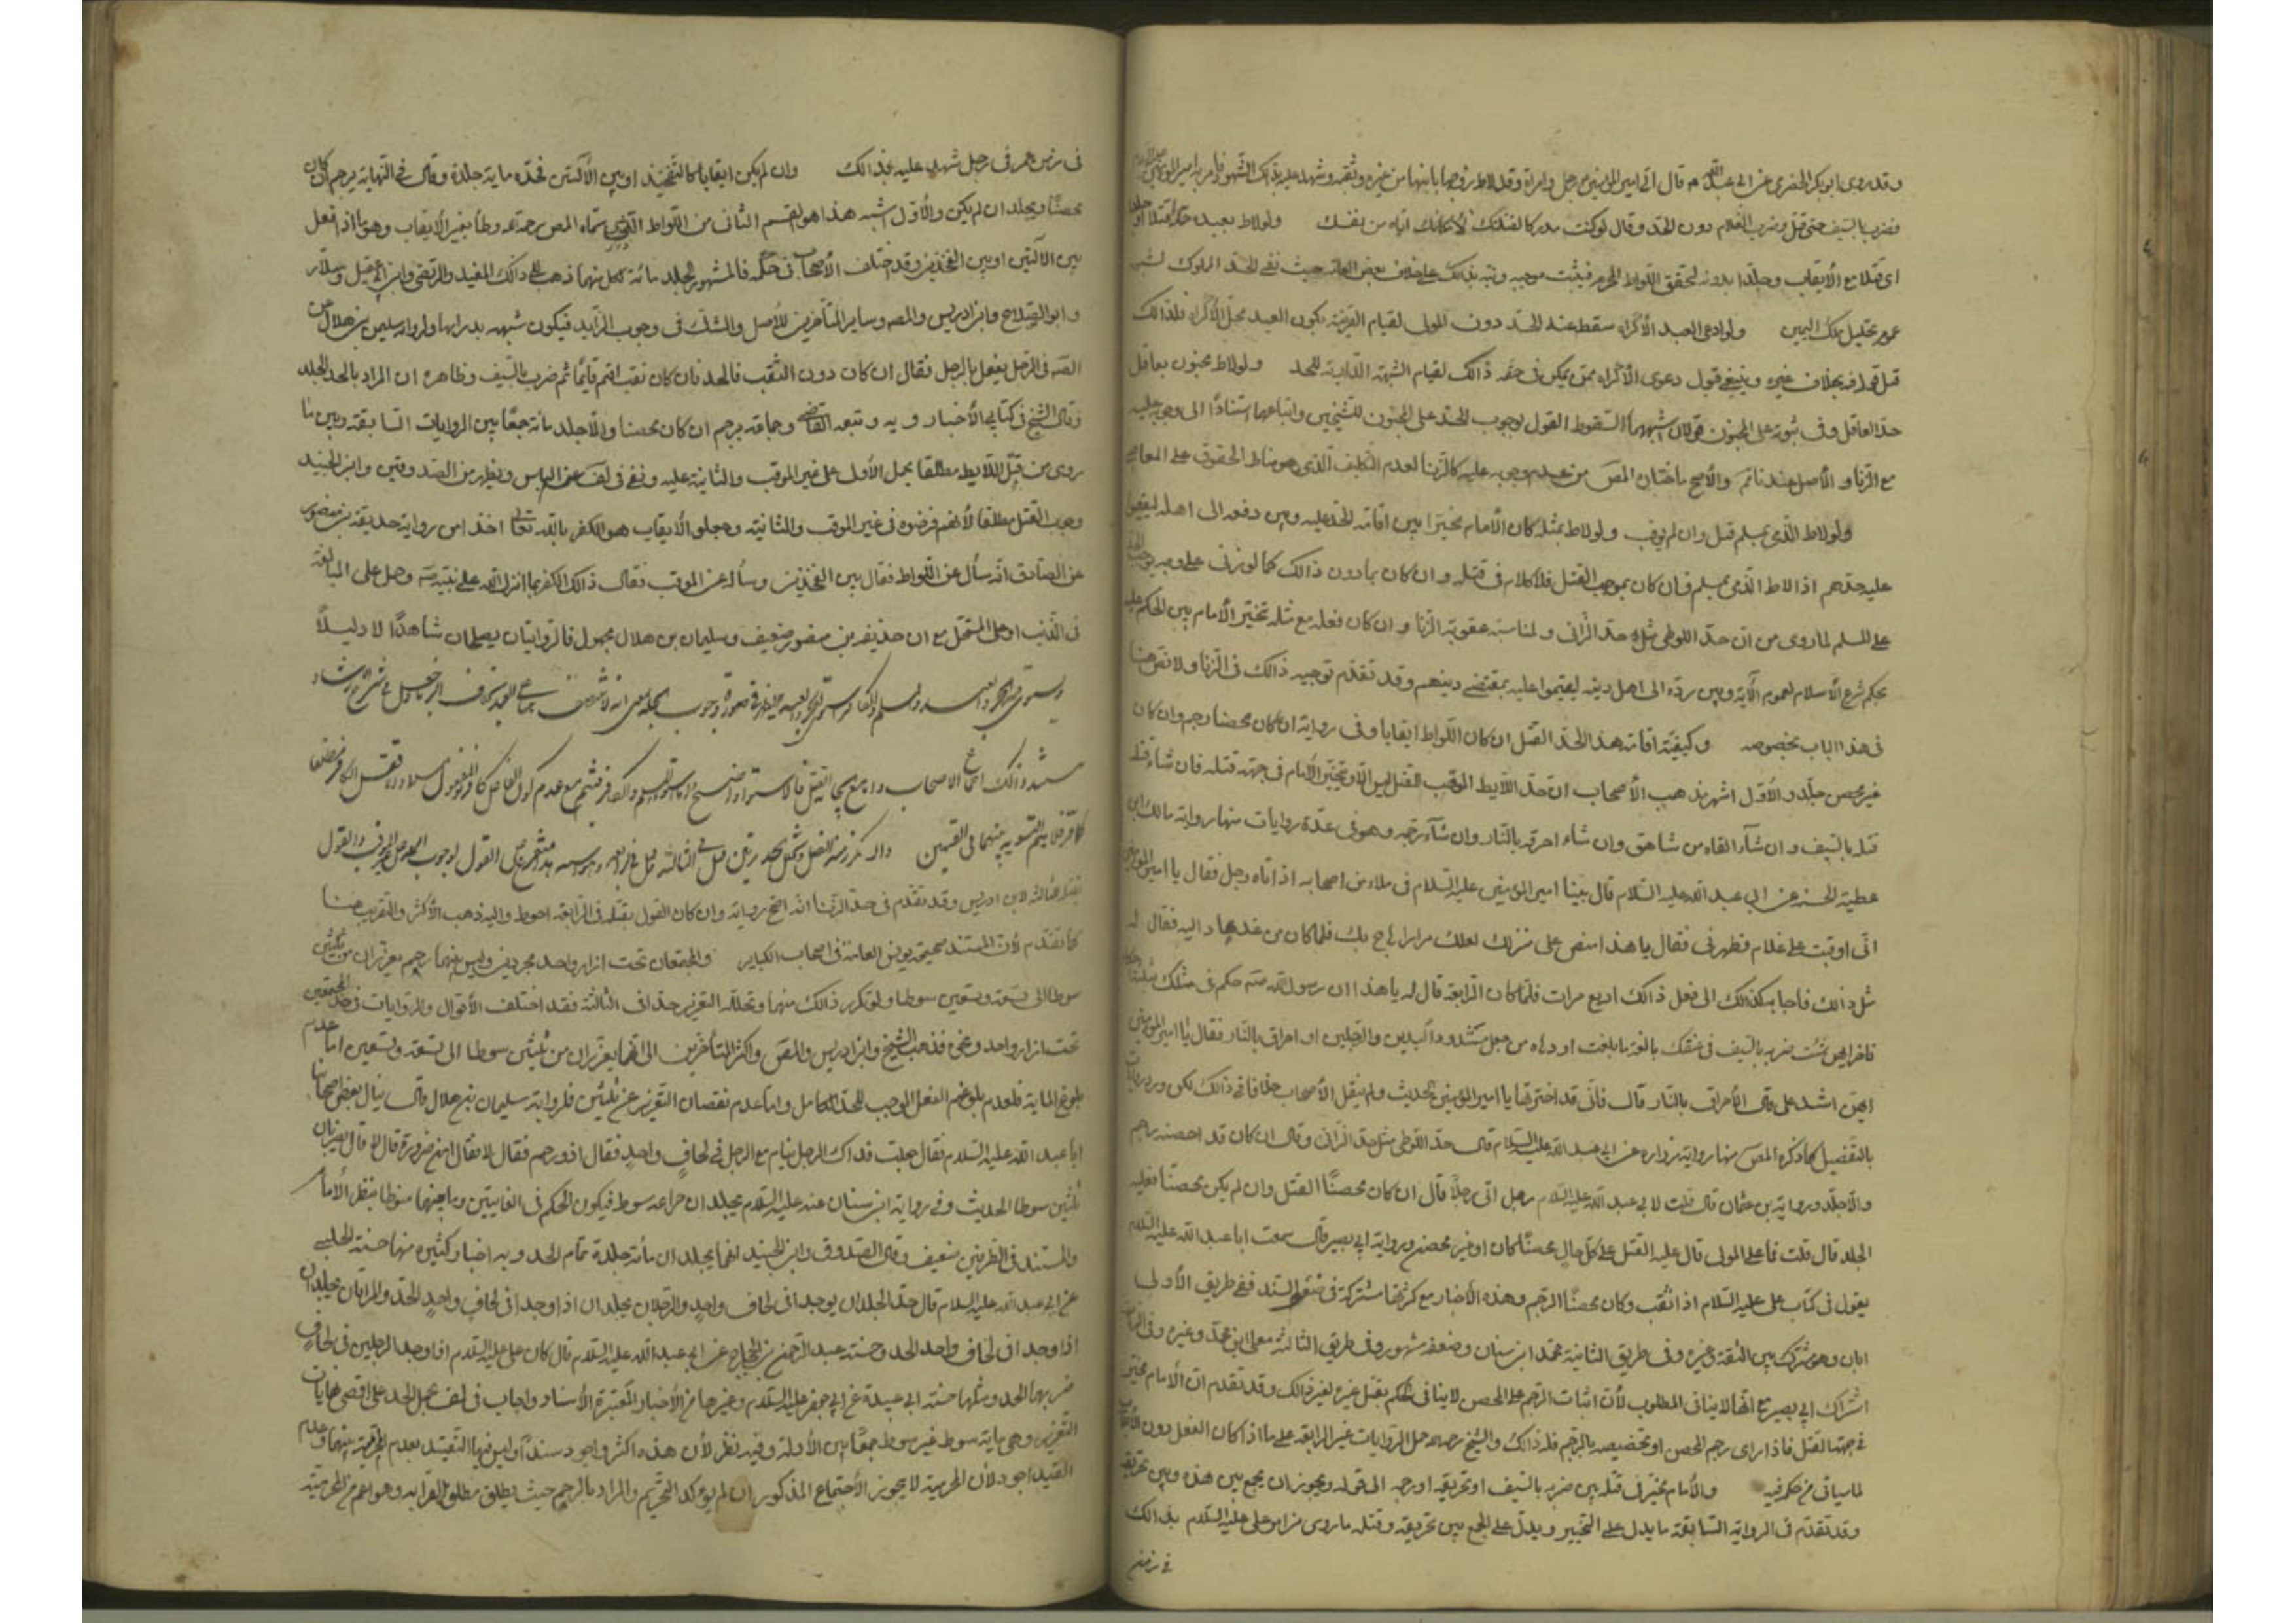 وقد روى ابو بكر الحضرمي عن ابي عبد الله م قال اتي امير المؤمنين برجل وامراة وقد لاط زوجها بابنها من غيره وثقبه وشهد عليه بذلك الشهود فامر به امير المؤمنين
فضرب بالسيف حتى قتل وضرب الغلام دون الحد وقال لو كنت مدركا لقتلتك لامكانك اياه من نفسك ولو لاط بعبده حدا قتلا او جلدا
اى قتلا مع الايقاب وجلدا بدونه لتحقق اللواط المحرم فيثبت موجبه ونبه بذلك على خلاف بعض العامة حيث نفى الحد المملوك لشبهة
عموم تحليل ملك اليمين ولو ادعى العبد الاكراه سقط عنه الحد دون المولى لقيام القرينة بكون العبد محل الاكراه فلذالك
قبل قوله به بخلاف غيره وينبغى قبول دعوى الاكراه ممن يمكن فى حقه ذالك لقيام الشبهة الدارئة للحد ولو لاط مجنون بعاقل
حد العاقل وفى ثبوته على المجنون قولان اشبههما السقوط القول بوجوب الحد على المجنون للشيخين واتباعهما استنادا الى وجوبه عليه
مع الزنا والاصل عندنا ثم والاصح ما اختاره المص من عدم وجوبه عليه كالزنا لعدم التكليف الذى هو مناط الحقوق على المعاصى
ولو لاط الذمى بمسلم قتل وان لم يوقب ولو لاط بمثله كان الامام مخيرا بين اقامة الحد عليه وبين دفعه الى اهله ليقيموا
عليه حدهم اذا لاط الذمى بمسلم فان كان بموجب القتل فلا كلام فى قتله وان كان بما دون ذالك كما لو زنى على وجه يوجب الجلد
على المسلم لما روى من ان حد اللوطى مثل حد الزانى ولمناسبة عقوبة الزنا وان كان فعله مع مثله تخير الامام بين الحكم عليه
بحكم شرع الاسلام لعموم الاية وبين رده الى اهل دينه ليقيموا عليه بمقتضى دينهم وقد تقدم توجيه ذالك فى الزنا ولا نص هنا
فى هذا الباب بخصوصه وكيفية اقامة هذا الحد القتل ان كان اللواط ايقابا وفى رواية ان كان محصنا رجم وان كان
غير محصن جلد والاول اشهر مذهب الاصحاب ان حد اللايط الموقب القتل ليس الا ويتخير الامام فى جهة قتله فان شاء قتله
قتله بالسيف وان شاء القاه من شاهق وان شاء احرقه بالنار وان شاء رجمه وهو فى عدة روايات منها رواية مالك بن
عطية الحسنة عن ابي عبد الله عليه السلام قال بينا امير المؤمنين عليه السلام فى ملاء من اصحابه اذ اتاه رجل فقال يا امير المؤمنين
انى اوقبت على غلام فطهرنى فقال يا هذا امض على منزلك لعل مرارا هاج بك فلما كان من غد عاد اليه فقال له
مثل ذالك فاجابه كذالك الى فعل ذالك اربع مرات فلما كان الرابعة قال له يا هذا ان رسول الله ص حكم فى مثلك بثلاثة احكام
فاختر ايهن شئت ضربة بالسيف فى عنقك بالغة ما بلغت او دهاه من جبل مشدود اليدين والرجلين او احراق بالنار فقال يا امير المؤمنين
ايهن اشد على قال الاحراق بالنار قال فانى قد اخترتها يا امير المؤمنين الحديث ولم ينقل الاصحاب خلافا فى ذالك لكن ورد روايات
بالتفصيل كما ذكره المص منها رواية زرارة عن ابي عبد الله عليه السلام قال حد اللوطى مثل حد الزانى وقال ان كان قد احصن رجم
والا جلد ورواية بن عثمان قال قلت لابي عبد الله عليه السلام رجل اتى رجلا قال ان كان محصنا القتل وان لم يكن محصنا فعليه
الجلد قال قلت فما على المولى قال عليه القتل على كل حال محصنا كان او غير محصن ورواية ابي بصير قال سمعت ابا عبد الله عليه السلام
يقول فى كتاب على عليه السلام اذا اثقب وكان محصنا الرجم وهذه الاخبار مع كثرتها مشتركة فى ضعف السند ففى طريق الاولى
ابان وهو مشترك بين الثقة وغيره وفى طريق الثانية محمد ابن سنان وضعفه مشهور وفى طريق الثالثة معلى ابن محمد وغيره وفى الرابعة
اشتراك ابي بصير مع انها لا ينافى المطلوب لان اثبات الرجم على المحصن لا ينافى الحكم بقتل غيره لغير ذالك وقد تقدم ان الامام مخير
فى جهة القتل فاذا راى رجم المحصن او تخصيصه بالرجم فله ذالك والشيخ رحمه الله حمل الروايات غير الرابعة على ما اذا كان الفعل دون الايقاب
لما سياتى من حكم فيه والامام مخير فى قتله بين ضربه بالسيف او تحريقه او رجمه الى قوله ويجوز ان يجمع بين هذه وبين تحريقه
وقد تقدم فى الرواية السابقة ما يدل على التخيير ويدل على الجمع بين تحريقه وقتله ما روى من امر على عليه السلام بذالك
فى زمن
فى زمن عمر فى رجل شهد عليه بذالك وان لم يكن ايقابا كالتفخيذ او بين الاليتين فحده ماية جلدة وقال فى النهاية يرجم ان كان
محصنا ويجلد ان لم يكن والاول اشبه هذا هو القسم الثانى من اللواط الذى سماه المص رحمه الله وطأ بغير الايقاب وهو ما اذا فعل
بين الاليتين او بين الفخذين وقد اختلف الاصحاب فى حكمه فالمشهور الجلد مائة لكل منهما ذهب الى ذالك المفيد والمرتضى وابن ابي عقيل وسلار
وابو الصلاح وابن ادريس والمصه وساير المتاخرين للاصل والشك فى وجوب الزايد فيكون شبهة يدرابها ولرواية سليمن بن هلال عن
الصه فى الرجل يفعل بالرجل فقال ان كان دون الثقب فالحد وان كان ثقب اقيم قائما ثم ضرب بالسيف وظاهره ان المراد بالحد الجلد
وقال الشيخ فى كتابي الاخبار و يه وتبعه القاضى وجماعة يرجم ان كان محصنا والا جلد مائة جمعا بين الروايات السابقة وبين ما
روى من قتل اللايط مطلقا بحمل الاولى على غير الموقب والثانية عليه ونفى فى لف عنه الباس ويظهر من الصدوقين وابن الجنيد
وجوب القتل مطلقا لانهم فرضوه فى غير الموقب والثانية وجعلوا الايقاب هو الكفر بالله تعالى اخذا من رواية حذيفة بن منصور
عن الصادق انه سأل عن اللواط فقال بين الفخذين وسأله عن الموقب فقال ذالك الكفر بما انزل الله على نبيه ص وحمل على المبالغة
فى الذنب او على المستحل مع ان حذيفة بن منصور ضعيف وسليمان بن هلال مجهول فالروايتان يصلحان شاهدا لا دليلا
ويستوى فيه الحر والعبد والمسلم والكافر
كافر فلا يتم التسوية بينهما فى القسمين والقول
بقتله فى الثالثة لابن ادريس وقد تقدم فى حد الزنا انه اصح رواية وان كان القول بقتله فى الرابعة احوط واليه ذهب الاكثر والتقريب هنا
كما تقدم لان المستند صحيحة يونس العامة فى اصحاب الكباير والمجتمعان تحت ازار واحد مجردين وليس بينهما رحم يعزران من ثلثين
سوطا الى تسعة وتسعين سوطا ولو تكرر ذالك منهما وتخلله التعزير حدا فى الثالثة فقد اختلف الاقوال والروايات فى حكم المجتمعين
تحت ازار واحد ونحوه فذهب الشيخ وابن ادريس والمص واكثر المتاخرين الى انهما يعزران من ثلثين سوطا الى تسعة وتسعين اما عدم
بلوغ الماية فلعدم بلوغهم الفعل الموجب للحد الكامل واما عدم نقصان التعزير عن ثلثين فلرواية سليمان بن هلال قال سال بعض اصحابنا
ابا عبد الله عليه السلام فقال جعلت فداك الرجل ينام مع الرجل فى لحاف واحد فقال اذو رحم فقال لا فقال امن ضرورة قال لا قال يضربان
ثلثين سوطا الحديث وفى رواية ابن سنان عنه عليه السلام يجلدان حدا غير سوط فيكون الحكم فى الغايتين وما بينهما منوطا بنظر الامام
والمستند فى الطرفين ضعيف وقال الصدوق وابن الجنيد انهما يجلدان مائة جلدة تمام الحد وبه اخبار كثيرة منها حسنة الحلبى
عن ابي عبد الله عليه السلام قال حد الجلد ان يوجدا فى لحاف واحد والرجلان يجلدان اذا وجدا فى لحاف واحد الحد والمراتان يجلدان
اذا وجدا فى لحاف واحد الحد وحسنة عبد الرحمن بن الحجاج عن ابي عبد الله عليه السلام قال كان على عليه السلام اذا وجد الرجلين فى لحاف
ضربهما الحد ومثلها حسنة ابي عبيدة عن ابي جعفر عليه السلام وغيرها من الاخبار المعتبرة الاسناد واجاب فى لف بحمل الحد على اقصى نهايات
التعزير وهى ماية سوط غير سوط جمعا بين الادلة وفيه نظر لان هذه اكثر واجود سندا وليس فيها التقييد بعدم المحرمية بينهما وعدم
القيد اجود لان المحرمية لا يجوز الاجتماع المذكور ان لم يؤكد التحريم والمراد بالرحم حيث يطلق مطلق القرابة وهو اعم من المحرمية